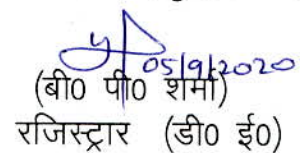 05/9/2020
(बी0 पी0 शर्मा)
रजिस्ट्रार (डी0 ई0)